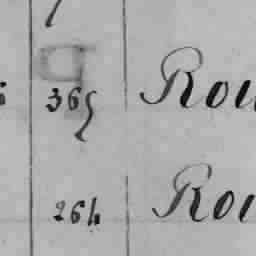 365 Rou
264 Rou